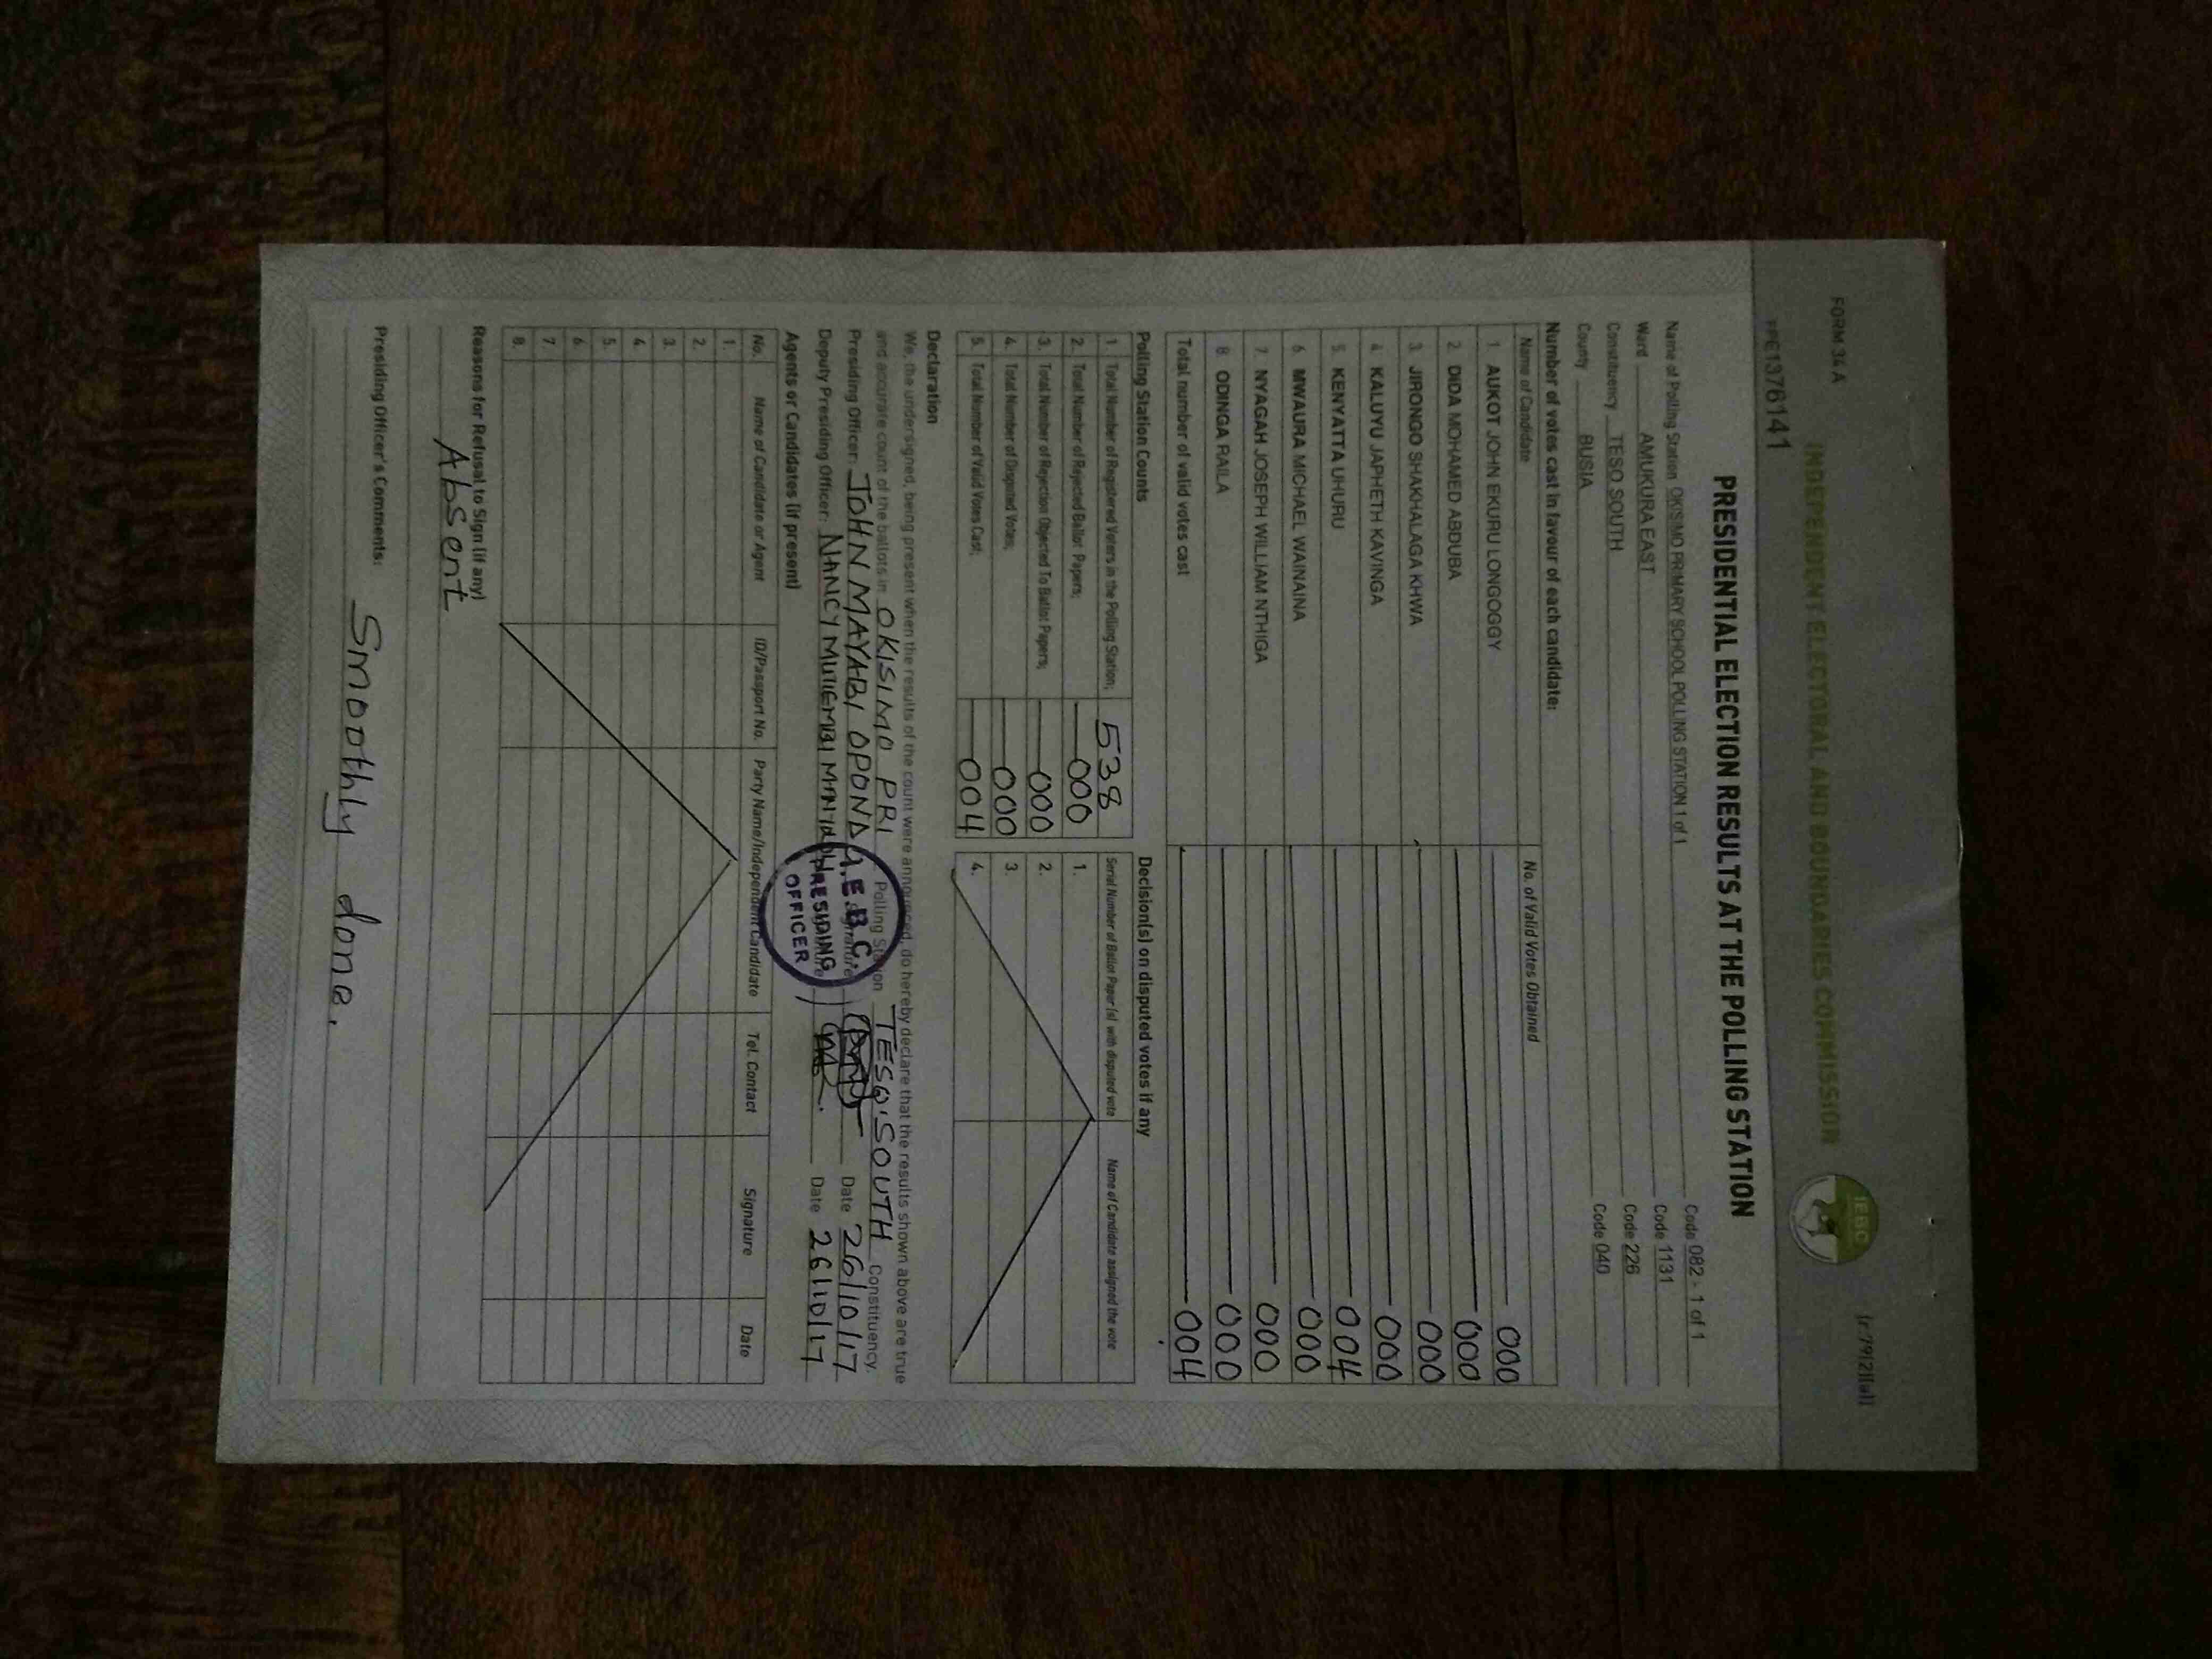 FORM 34 A
INDEPENDENT ELECTORAL AND BOUNDARIES COMMISSION
IEBC
PPE1376141
PRESIDENTIAL ELECTION RESULTS AT THE POLLING STATION
Name of Polling Station OKISIMO PRIMARY SCHOOL POLLING STATION 1 of 1 Code 082 - 1 of 1
Ward AMUKURA EAST Code 1131
Constituency TESO SOUTH Code 226
County BUSIA Code 040
Number of votes cast in favour of each candidate:
Name of Candidate No. of Valid Votes Obtained
1. AUKOT JOHN EKURU LONGOGGY 000
2. DIDA MOHAMED ABDUBA 000
3. JIRONGO SHAKHALAGA KHWA 000
4. KALUYU JAPHETH KAVINGA 000
5. KENYATTA UHURU 004
6. MWAURA MICHAEL WAINAINA 000
7. NYAGAH JOSEPH WILLIAM NTHIGA 000
8. ODINGA RAILA 000
Total number of valid votes cast 004
Polling Station Counts
1 Total Number of Registered Voters in the Polling Station; 538
2. Total Number of Rejected Ballot Papers; 000
3. Total Number of Rejection Objected To Ballot Papers; 000
4. Total Number of Disputed Votes; 000
5. Total Number of Valid Votes Cast; 004
Decision(s) on disputed votes if any
Serial Number of Ballot Paper (s) with disputed vote Name of Candidate assigned the vote
1.
2.
3.
4.
Declaration
We, the undersigned, being present when the results of the count were announced, do hereby declare that the results shown above are true
and accurate count of the ballots in OKISIMO PRI Polling Station TESO SOUTH Constituency.
Presiding Officer: JOHN MAYABI OPONDA Signature Date 26/10/17
Deputy Presiding Officer: NANCY Signature Date 26/10/17
I.E.B.C.
PRESIDING
OFFICER
Agents or Candidates (if present)
No. Name of Candidate or Agent ID/Passport No. Party Name/Independent Candidate Tel. Contact Signature Date
1.
2.
3.
4.
5.
6.
7.
8.
Reasons for Refusal to Sign (if any)
Absent
Presiding Officer's Comments:
Smoothly done.